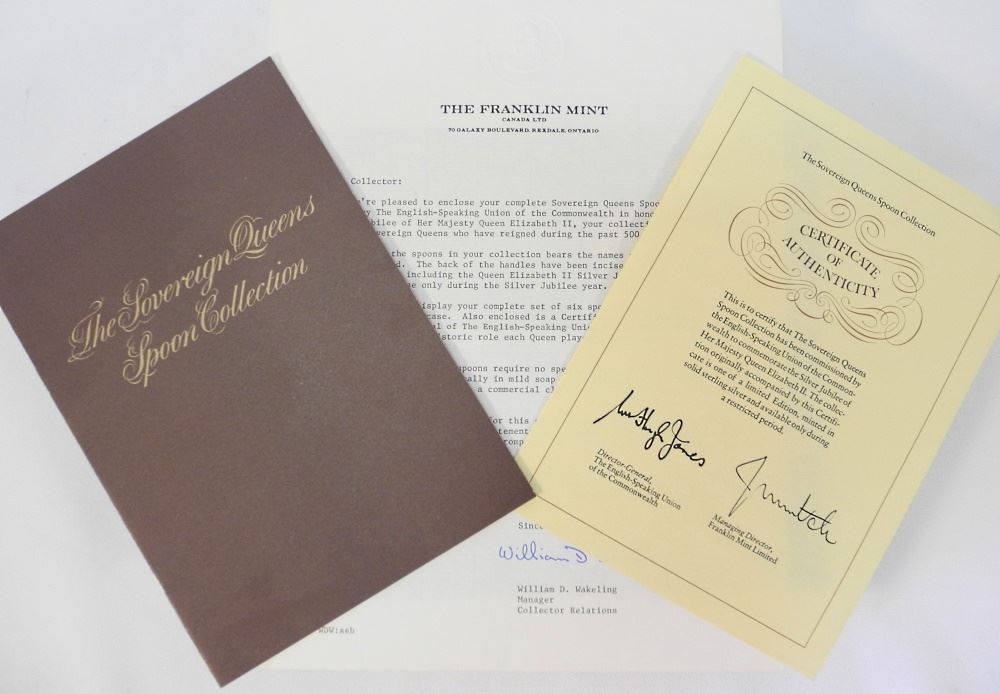 The Sovereign Queens
Spoon Collection
THE FRANKLIN MINT
CANADA LTD
70 GALAXY BOULEVARD, REXDALE, ONTARIO
Collector:
're pleased to enclose your complete Sovereign Queens Spoo
y The English-Speaking Union of the Commonwealth in hono
ubilee of Her Majesty Queen Elizabeth II, your collecti
vereign Queens who have reigned during the past 500
the spoons in your collection bears the names
d. The back of the handles have been incise
including the Queen Elizabeth II Silver J
e only during the Silver Jubilee year.
isplay your complete set of six spo
case. Also enclosed is a Certif
l of The English-Speaking Unio
istoric role each Queen play
spoons require no spe
ally in mild soap
a commercial cl
for this
tement
romp
Since
William D
William D. Wakeling
Manager
Collector Relations
WDW:seb
The Sovereign Queens Spoon Collection
CERTIFICATE
OF
AUTHENTICITY
This is to certify that The Sovereign Queens
Spoon Collection has been commissioned by
the English-Speaking Union of the Common-
wealth to commemorate the Silver Jubilee of
Her Majesty Queen Elizabeth II. The collec-
tion originally accompanied by this Certifi-
cate is one of a limited Edition, minted in
solid sterling silver and available only during
a restricted period.
Director-General,
The English-Speaking Union
of the Commonwealth
Managing Director,
Franklin Mint Limited